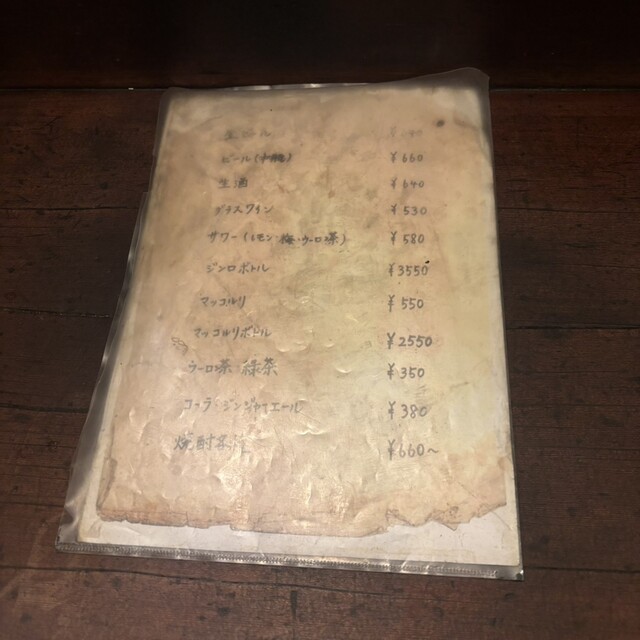 生ビール
ビール(中瓶) ¥660
生酒 ¥640
グラスワイン ¥530
サワー(レモン・梅・ウーロ茶) ¥580
ジンロボトル ¥3550
マッコルリ ¥550
マッコルリボトル ¥2550
ウーロ茶 緑茶 ¥350
コーラ・ジンジャーエール ¥380
焼酎各種 ¥660〜